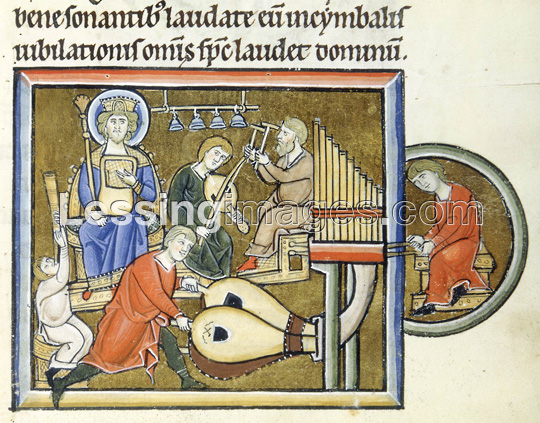 bene sonantib⁹ laudate eū incymbalis
iubilationis om̄is sp̄c laudet dominū.
Lessingimages.com